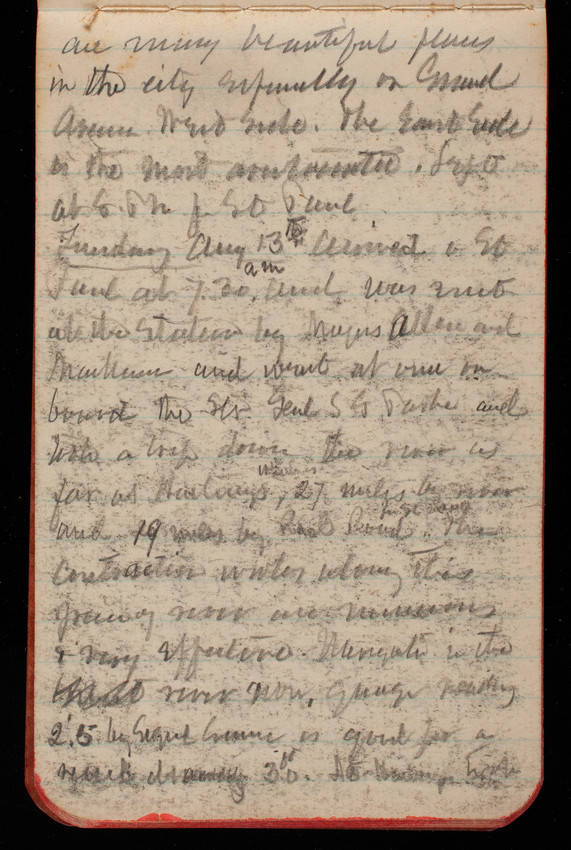 are many beautiful places
in the city especially on Grand
Avenue West Side. The East Side
is the most
at 6 PM for St Paul
Sunday Aug 13th Arrived in St
am
Paul at 7.30, and was met
at the Station by Majors Allen and
and went at once on
board the Str Genl and
took a trip down the river as
far as Hastings, 27 miles by river
and 19 miles by Rail Road. The
Contraction works along this
of river are numerous
& very effective. Navigation in the
river now, guage reading
2'.5 by Signal is good for a
drawing 3'.0.